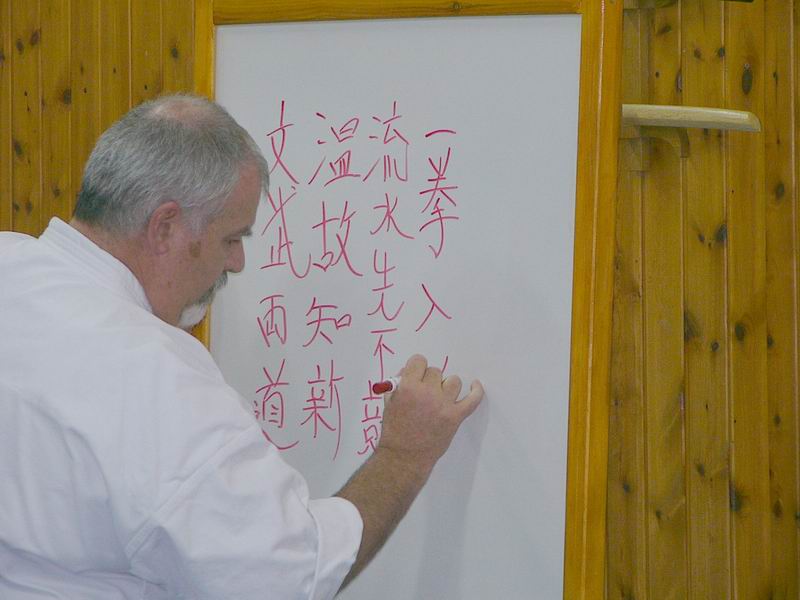 一拳入
流水先不競
温故知新
文武両道